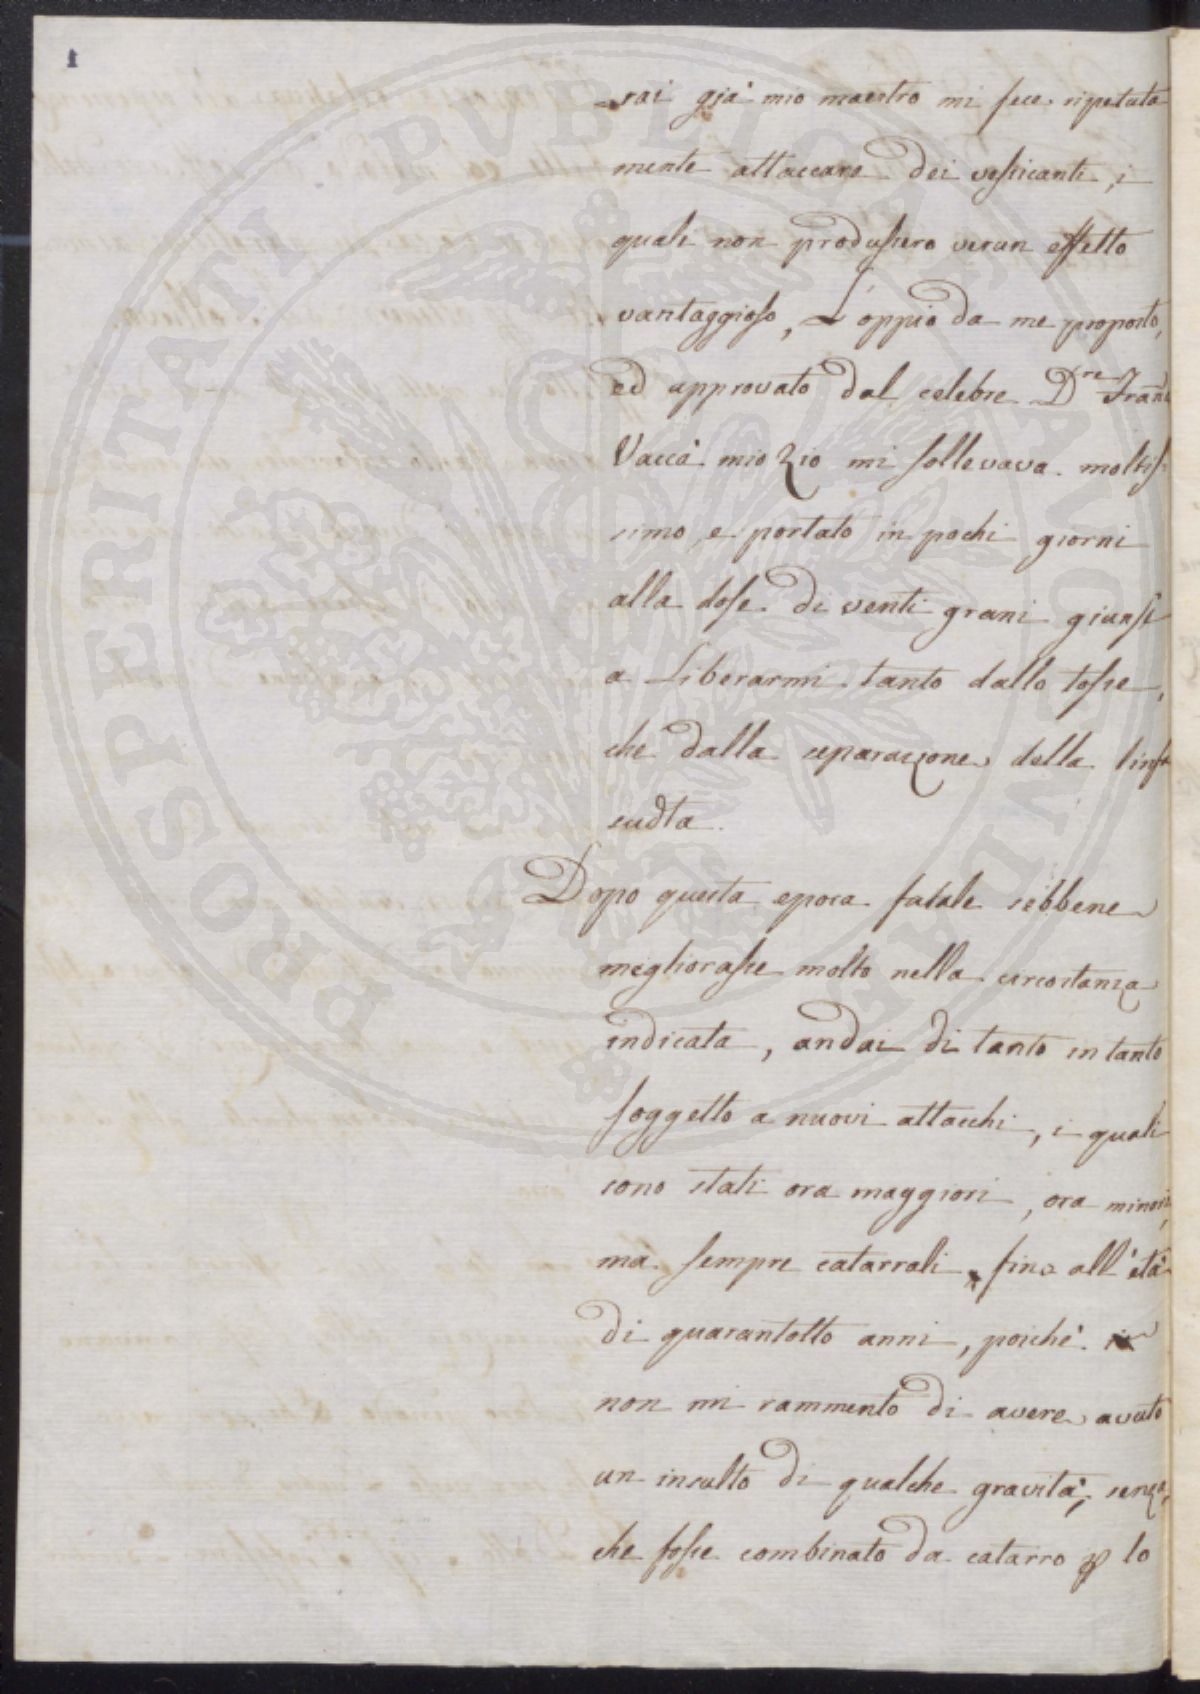 1
-rai già mio maestro mi fece ripetuta
mente attaccare dei vessicanti, i
quali non produssero verun effetto
vantaggioso, L'oppio da me proposto,
ed approvato dal celebre D.re Fran
Vaccà mio Zio mi sollevava moltis-
simo, e portato in pochi giorni
alla dose di venti grani giunse
a Liberarmi tanto dalla tosse,
che dalla separazione della linfa
sud.ta
Dopo questa epoca fatale sebbene
migliorasse molto nella circostanza
indicata, andai di tanto in tanto
soggetto a nuovi attacchi, i quali
sono stati ora maggiori, ora minori,
ma sempre catarrali, fino all'età
di quarantotto anni, poichè
non mi rammento di avere avuto
un insulto di qualche gravità, senza,
che fosse combinato da catarro p lo
PROSPERITATI PUBLICAE AUGENDAE